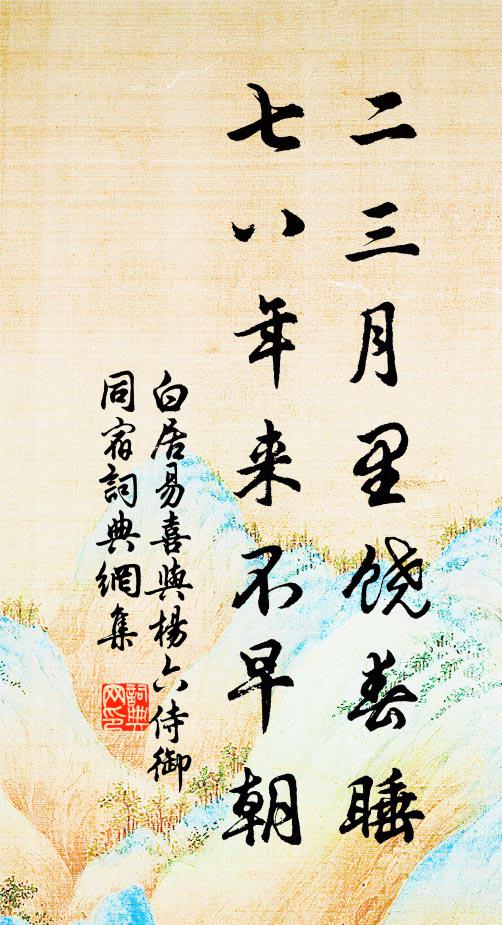 二三月里饶春睡
七八年来不早朝
白居易喜與楊六侍御
同宿詞典網集
詞典
网印